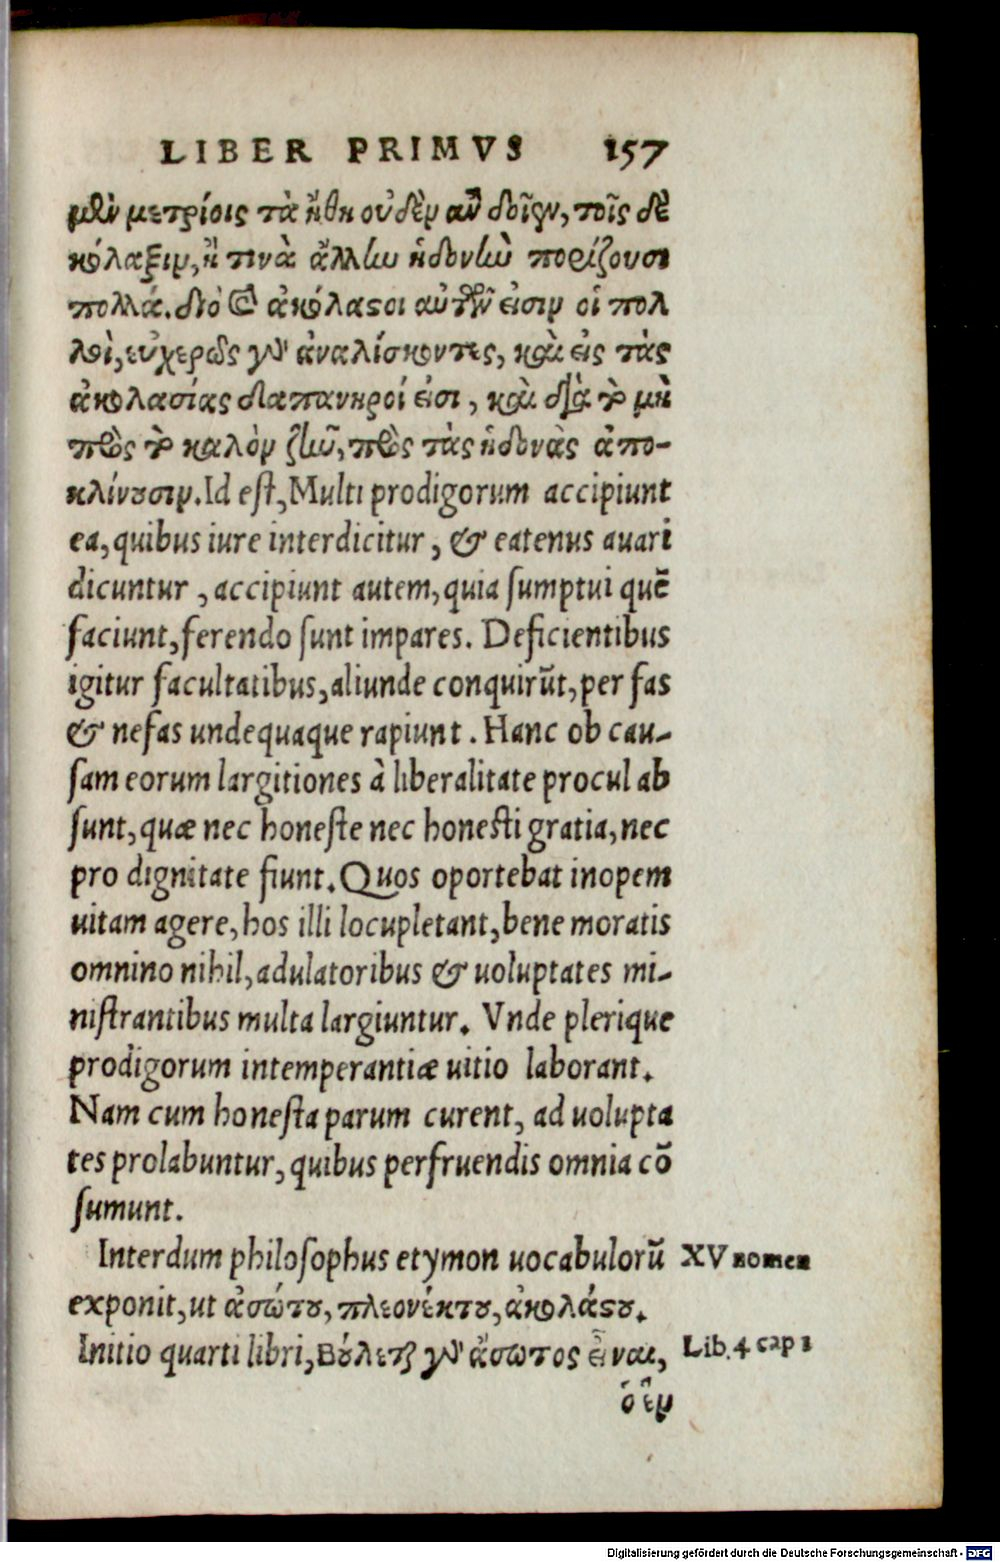 LIBER PRIMVS 157
μὲν μετρίοις τὰ ἤθη οὐδὲν ἂν δοῖεν, τοῖς δὲ
κόλαξιν, ἤ τινὰ ἄλλην ἡδονὴν πορίζουσι
πολλά. διὸ καὶ ἀκόλαστοι αὐτῶν εἰσιν οἱ πολ
λοὶ, εὐχερῶς γὰρ ἀναλίσκοντες, καὶ εἰς τὰς
ἀκολασίας δαπανηροί εἰσι, καὶ διὰ τὸ μὴ
πρὸς τὸ καλὸν ζῆν, πρὸς τὰς ἡδονὰς ἀπο-
κλίνουσιν. Id eſt, Multi prodigorum accipiunt
ea, quibus iure interdicitur, & eatenus auari
dicuntur, accipiunt autem, quia ſumptui quē
faciunt, ferendo ſunt impares. Deficientibus
igitur facultatibus, aliunde conquirūt, per fas
& nefas undequaque rapiunt. Hanc ob cau-
ſam eorum largitiones à liberalitate procul ab
ſunt, quæ nec honeſte nec honeſti gratia, nec
pro dignitate fiunt. Quos oportebat inopem
uitam agere, hos illi locupletant, bene moratis
omnino nihil, adulatoribus & uoluptates mi-
niſtrantibus multa largiuntur. Vnde plerique
prodigorum intemperantiæ uitio laborant.
Nam cum honeſta parum curent, ad uolupta
tes prolabuntur, quibus perfruendis omnia cō
ſumunt.
Interdum philoſophus etymon uocabulorū XV nomen
exponit, ut ἀσώτου, πλεονέκτου, ἀκολάστου.
Initio quarti libri, Βούλεται γὰρ ἄσωτος εἶναι, Lib. 4 cap 1
ὁ ἕν
Digitalisierung gefördert durch die Deutsche Forschungsgemeinschaft - DFG